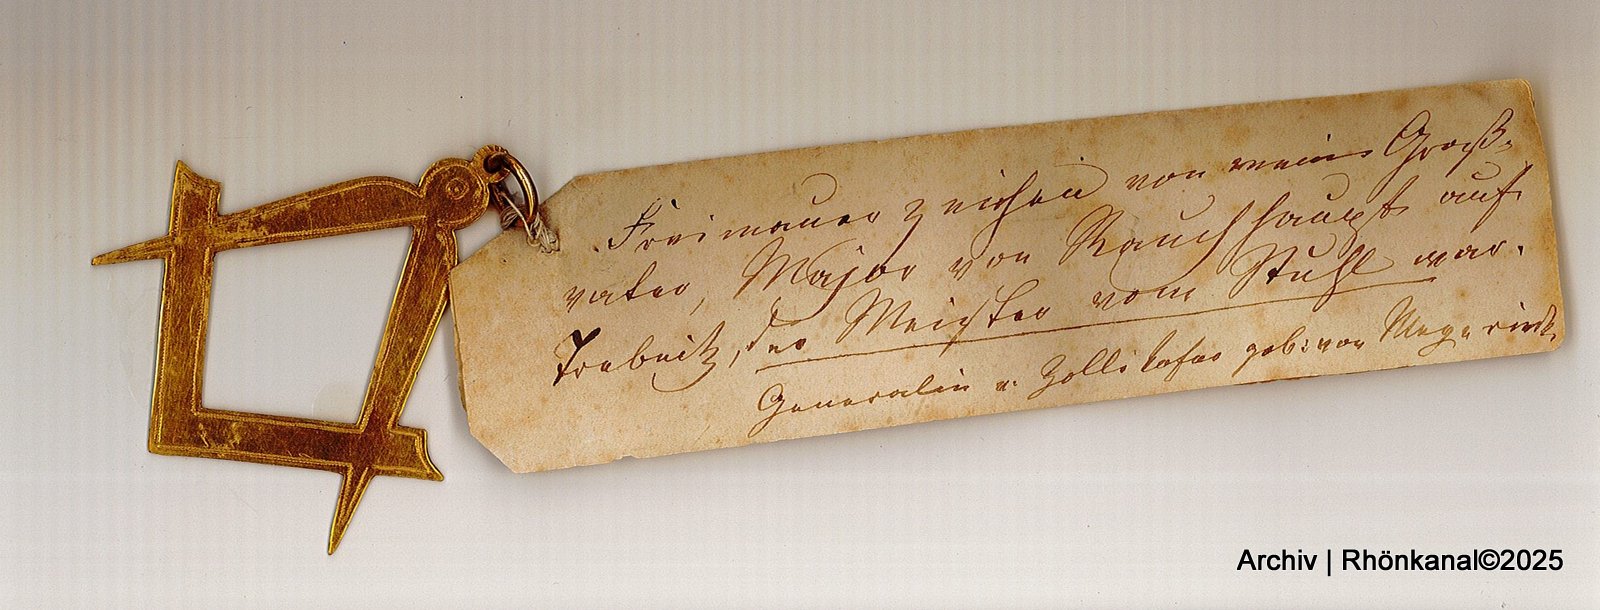 Freimaurerzeichen von meinem Groß-
vater, Major von Rauchhaupt auf
Trebnitz, der Meister vom Stuhl war.
Generalin v. Zollikofer geb: von Meyerinck
Archiv | Rhönkanal©2025